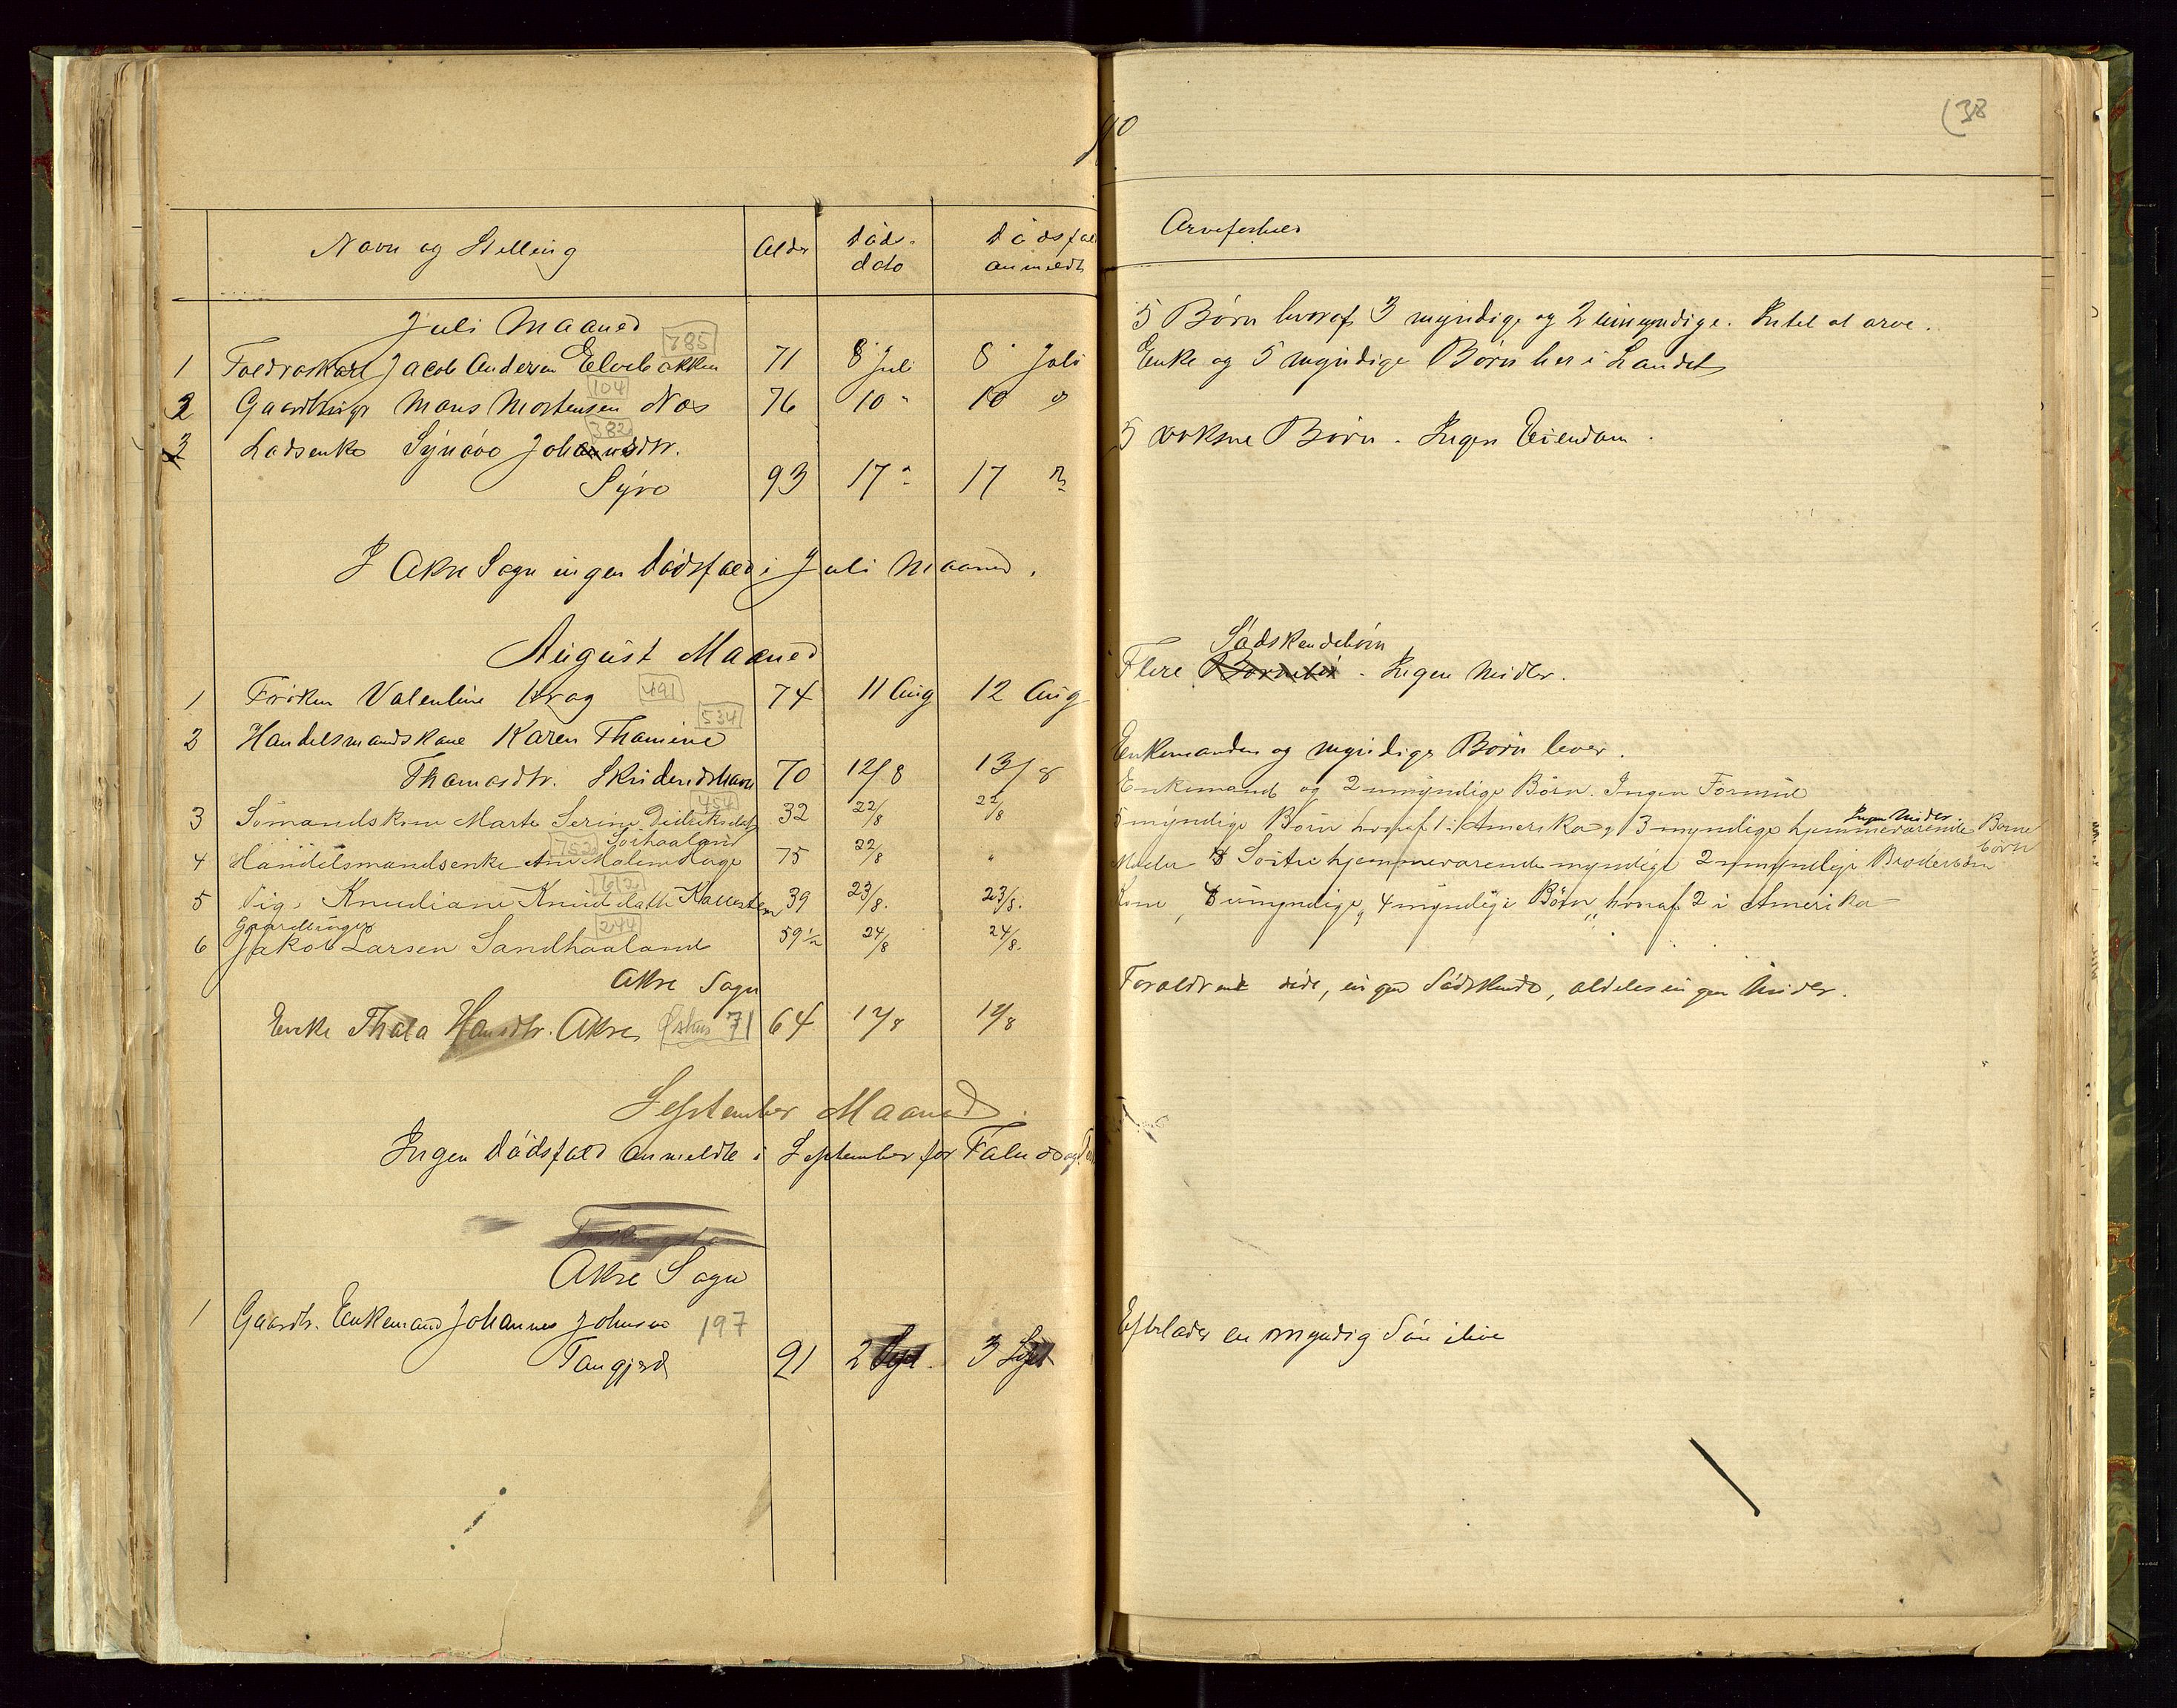 (38
Navn og Stilling Alder Døds- dato Dødsfald anmeldt
Arveforhold
Juli Maaned
785
1 Foedraskarl Jacob Andersen Elvebakken 71 8 Juli 8 Juli
5 Børn hvoraf 3 myndige og 2 umyndige. Intet at arve.
104
2 Gaardbruger Mons Mortensen Nes 76 10 " 10 "
Enke og 5 myndige Børn her i Landet
382
3 Ladsenke Synøve Johannsdtr.
Syre 93 17 " 17 "
5 voksne Børn. Ingen Eiendom.
I Akre Sogn ingen Dødsfald i Juli Maaned.
August Maaned
1 Frøken Valentine Krag 491 74 11 Aug 12 Aug
Sødskendebørn
Flere - Ingen Midler.
534
2 Handelsmandskone Karen Thamine
Thomasdtr. Skudeneshavn 70 12/8 13/8
Enkemanden og myndige Børn lever.
454
3 Sømandskone Marte Serine Didriksdatr 32 22/8 22/8
Sørhaaland
Enkemand og 2 umyndige Børn. Ingen Formue
752
4 Handelsmandsenke Ane Malene Hage 75 22/8 "
5 myndige Børn hvoraf 1 i Amerika og 3 myndige hjemmeværende Børne
Ingen Midler.
Børn
612
5 Pige Knudiane Knudsdatter Kallesten 39 23/8. 23/8.
Moder & Søstre hjemmeværende myndige 2 umyndige Broderbørn
Gaardbruger 244
6 Jakob Larsen Sandhaaland 59½ 24/8 24/8.
Kone, umyndige, 4 myndige Børn, hvoraf 2 i Amerika
Akre Sogn
Enke Thala Hansdtr. Akre Østhus 71 64 12/8 12/8
Forældrene døde, ingen Sødskende, aldeles ingen Midler.
September Maaned.
Ingen Dødsfald anmeldte i September for Falnes og
Akre Sogn
1 Gaardbr. Enkemand Johannes Johnsen 197
Tangjerd 91 2 Sept. 3 Sept
Efterlader en myndig Søn ilive